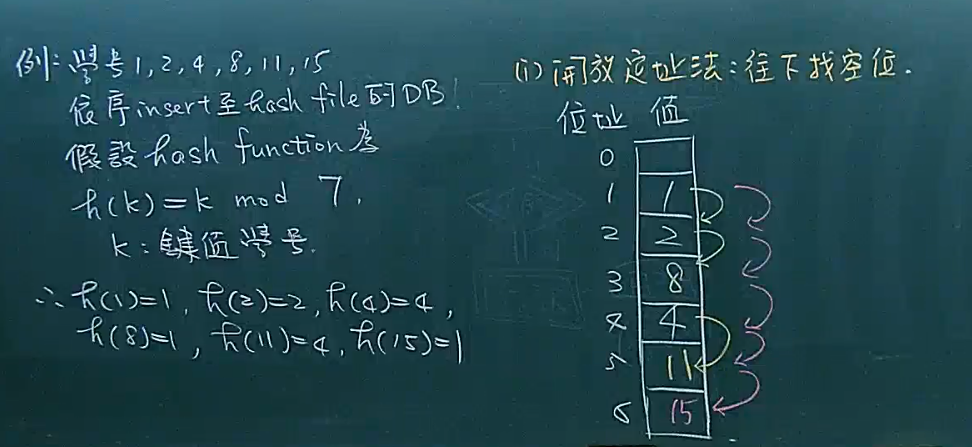 例:學号1,2,4,8,11,15
依序insert至hash file的DB!
假設hash function為
h(k)=k mod 7.
k:鍵值學号.
∴h(1)=1, h(2)=2, h(4)=4,
h(8)=1, h(11)=4, h(15)=1
(1)開放定址法:往下找空位.
位址 值
0
1 1
2 2
3 8
4 4
5 11
6 15